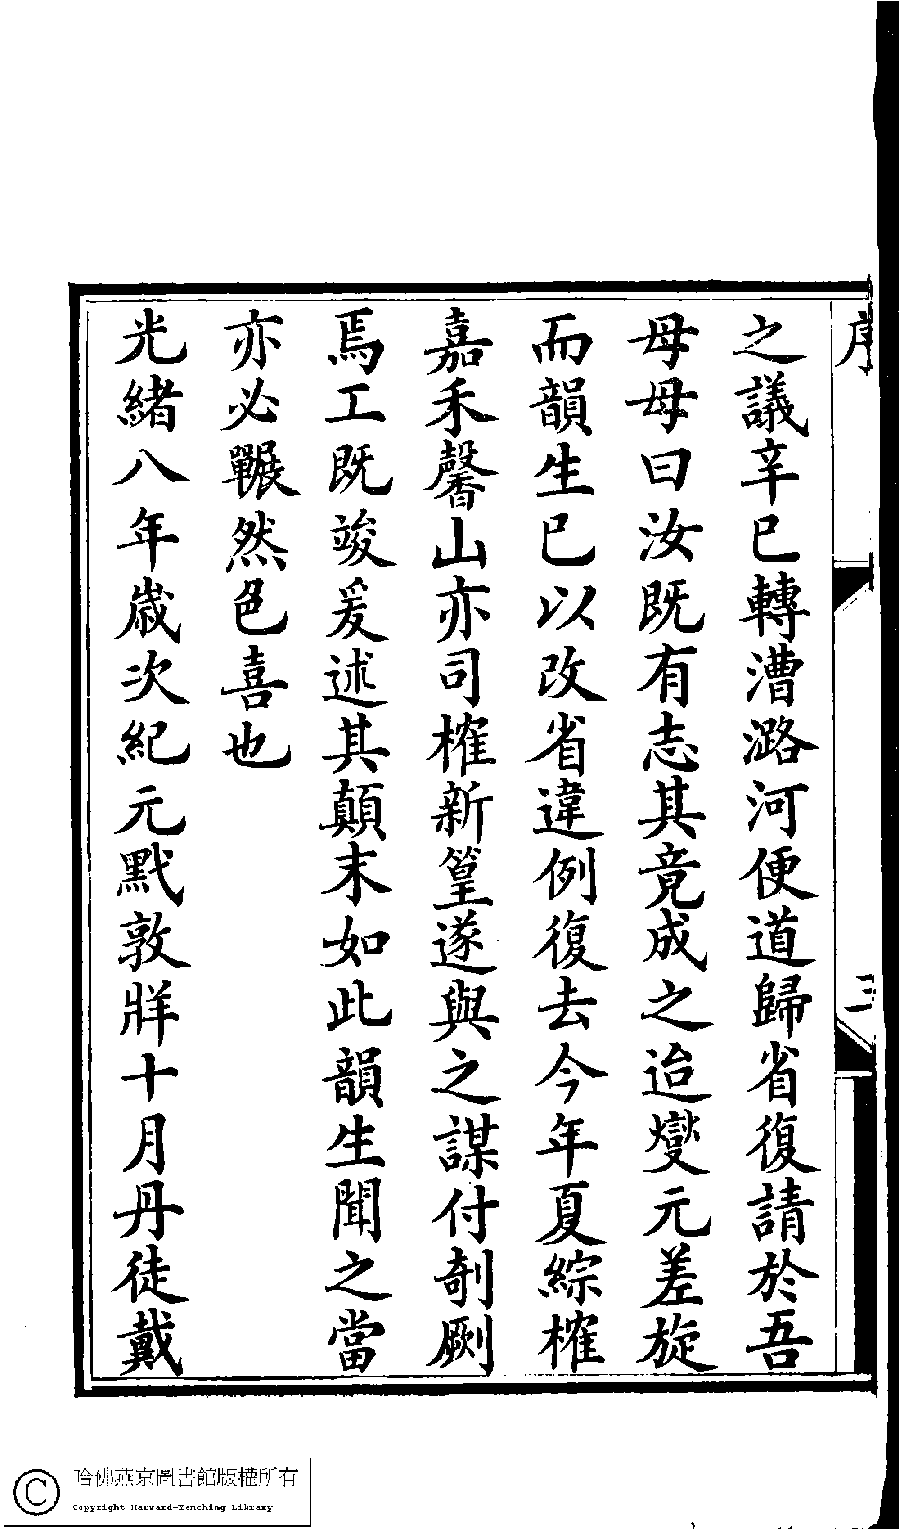 序
三
之議辛巳轉漕潞河便道歸省復請於吾
母母曰汝既有志其竟成之迨燮元差旋
而韻生已以改省違例復去今年夏綜榷
嘉禾馨山亦司榷新篁遂與之謀付剞劂
焉工既竣爰述其顛末如此韻生聞之當
亦必囅然色喜也
光緒八年歲次紀元黓敦牂十月丹徒戴
哈佛燕京圖書館版權所有
Copyright Harvard-Yenching Library